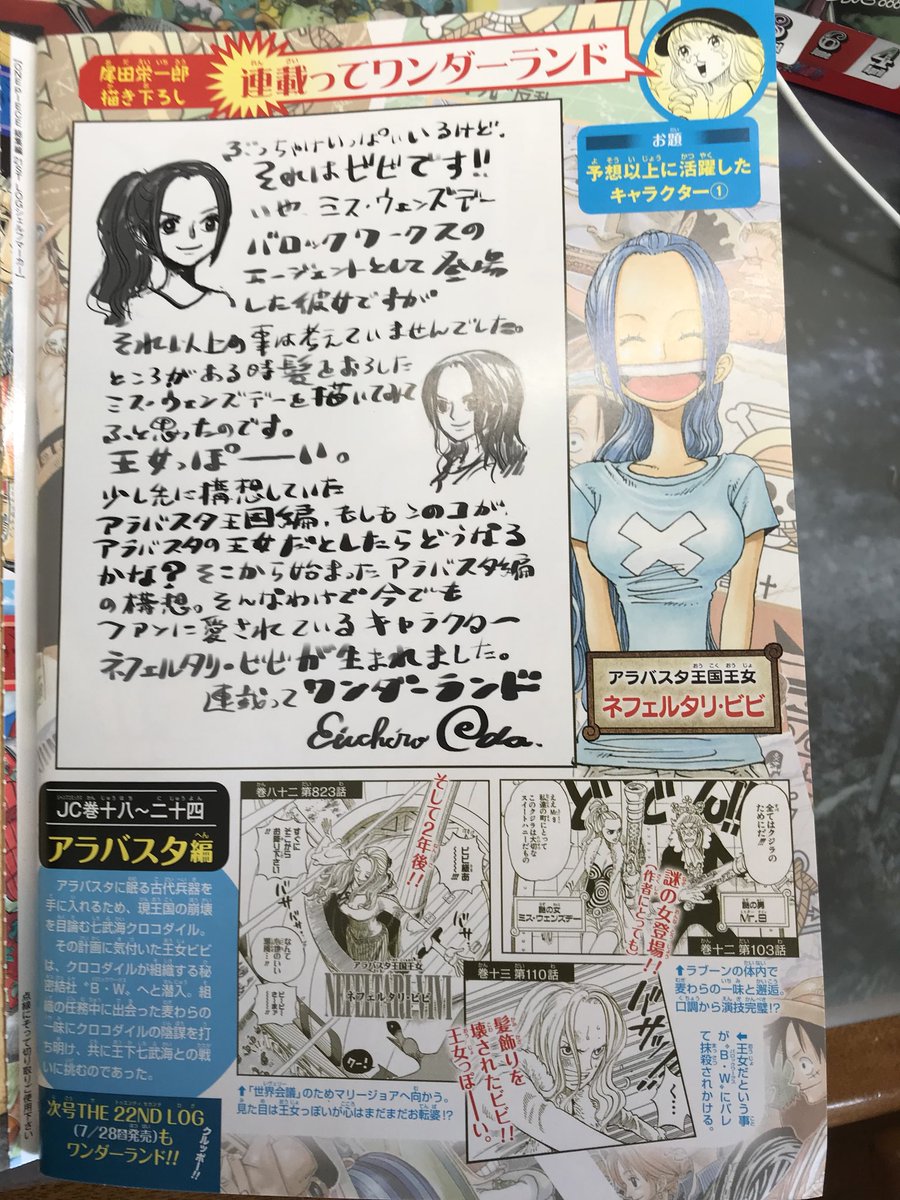 尾田栄一郎
描き下ろし
連載ってワンダーランド
お題
予想以上に活躍した
キャラクター①
ぶっちゃけいっぱいいるけど、
それはビビです!!
いや、ミス・ウェンズデー
バロックワークスの
エージェントとして登場
した彼女ですが
それ以上の事は考えていませんでした。
ところがある時髪をおろした
ミス・ウェンズデーを描いてみて
ふと思ったのです。
王女っぽーーい。
少し先に構想していた
アラバスタ王国編、もしもこのコが、
アラバスタの王女だとしたらどうなる
かな? そこから始まったアラバスタ編
の構想。そんなわけで今でも
ファンに愛されているキャラクター
ネフェルタリ・ビビが生まれました。
連載って ワンダーランド
Eiichiro Oda.
アラバスタ王国王女
ネフェルタリ・ビビ
JC巻十八〜二十四
アラバスタ編
アラバスタに眠る古代兵器を
手に入れるため、現王国の崩壊
を目論む七武海クロコダイル。
その計画に気付いた王女ビビ
は、クロコダイルが組織する秘
密結社“B・W”へと潜入。組
織の任務中に出会った麦わらの
一味にクロコダイルの陰謀を打
ち明け、共に王下七武海との戦
いに挑むのであった。
次号THE 22ND LOG
(7/28発売)も
ワンダーランド!!
クルッポー!!
巻八十二 第823話
そして2年後!!
すぐに
そこから
お降り下さい
ビビ様あ
アラバスタ王国王女
NEFELTARI・VIVI
ネフェルタリ・ビビ
クエー!
⬆「世界会議」のためマリージョアへ向かう。
見た目は王女っぽいが心はまだまだお転婆!?
全てはクジラの
ためにだ!!
ええMr.9
私達の町にとって
このクジラは大切な
スイートハニーだもの
謎の女
ミス・ウェンズデー
謎の男
Mr.9
謎の女登場!!
(作者にとっても)
巻十二 第103話
⬆ラブーンの体内で
麦わらの一味と邂逅。
口調から演技完璧!?
巻十三 第110話
髪飾りを
壊されたビビ!!
王女っぽーーい。
⬅王女だという事
が“B・W”にバレ
て抹殺されかける。
[ONE PIECE 総集編 21ST LOG シェルフマーカー]
点線にそって切り取りご使用下さい